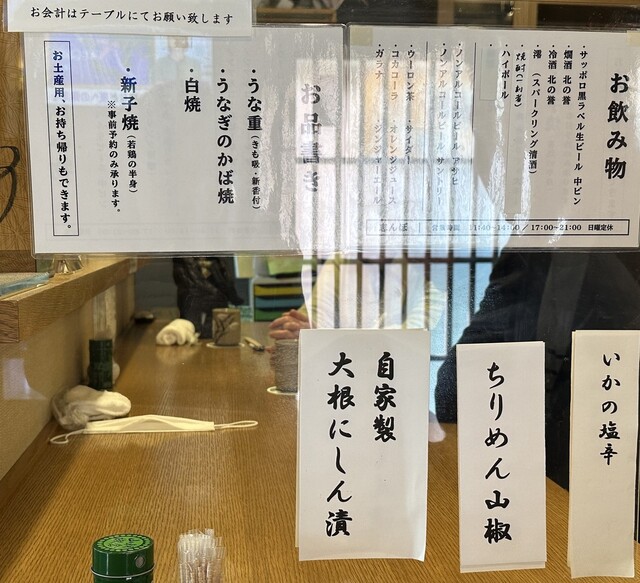 お会計はテーブルにてお願い致します
お飲み物
・サッポロ黒ラベル生ビール 中ビン
・燗酒 北の誉
・冷酒 北の誉
・澪 (スパークリング清酒)
・ハイボール
・ノンアルコールビール アサヒ
・ノンアルコールビール サントリー
・ウーロン茶 ・サイダー
・コカコーラ ・オレンジジュース
・ガラナ ・ジンジャーエール
営業時間 11:40~14:00/17:00~21:00 日曜定休
お品書き
・うな重(きも吸・新香付)
・うなぎのかば焼
・白焼
・新子焼(若鶏の半身)
※事前予約のみ承ります。
お土産用、お持ち帰りもできます。
いかの塩辛
ちりめん山椒
自家製
大根にしん漬